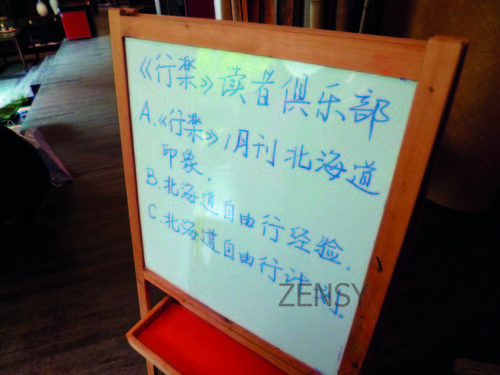 《行樂》读者俱乐部
A.《行樂》1月刊北海道
印象.
B.北海道自由行经验.
C.北海道自由行计划.
ZENSY